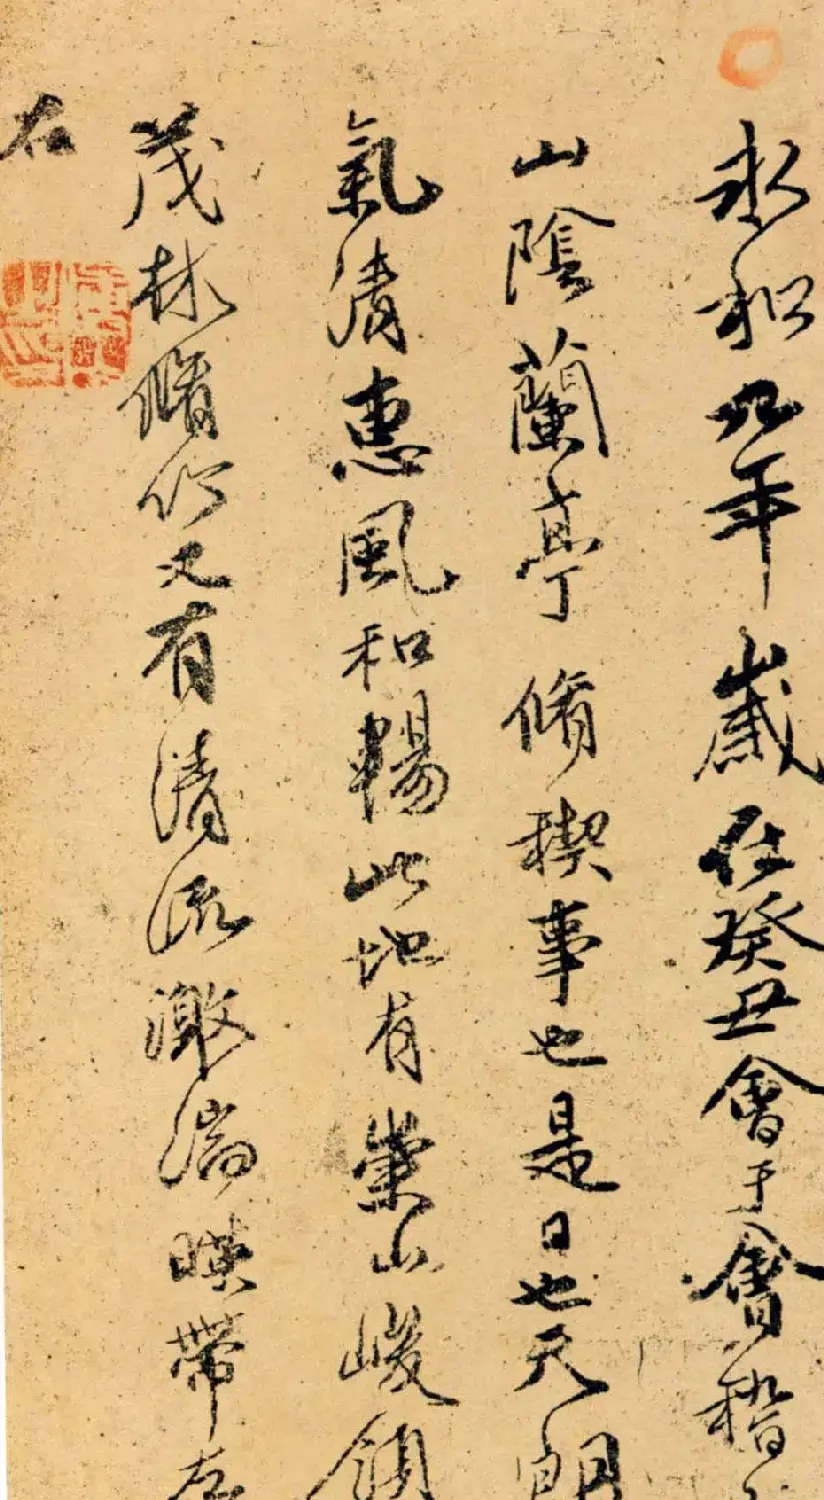 永和九年歲在癸丑會于會稽
山陰蘭亭脩稧事也是日也天朗
氣清惠風和暢此地有崇山峻領
茂林脩竹又有清流激湍暎帶左
右